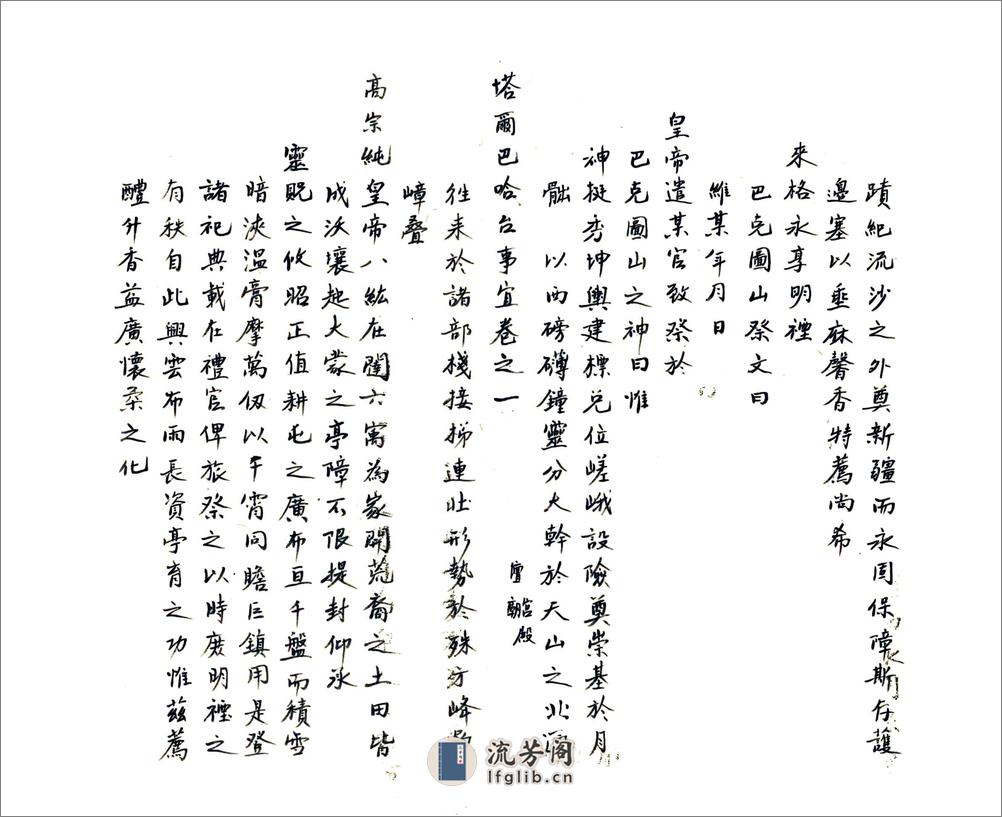 蹟紀流沙之外奠新疆而永固保障斯存護
邊塞以垂庥馨香特薦尚希
來格永享明禋
巴克圖山祭文曰
維某年月日
皇帝遣某官致祭於
巴克圖山之神曰惟
神挺秀坤輿建標兌位嵯峨設險奠崇基於月
𦙶以西磅礴鐘靈分大幹於天山之北
塔爾巴哈台事宜卷之一
壇廟宮殿
往来於諸部棧接梯連壯形勢於殊方峰
嶂疊
高宗純皇帝八紘在闥六寓為家開荒裔之土田皆
成沃壤起大蒙之亭障不限提封仰承
靈貺之攸昭正值耕屯之廣布亘千盤而積雪
暗浹溫膏摩萬仞以干霄同瞻巨鎮用是登
諸祀典載在禮官俾旅祭之以時庶明禋之
有秩自此興雲布雨長資亭育之功惟茲薦
醴升香益廣懷柔之化
流芳阁
lfglib.cn